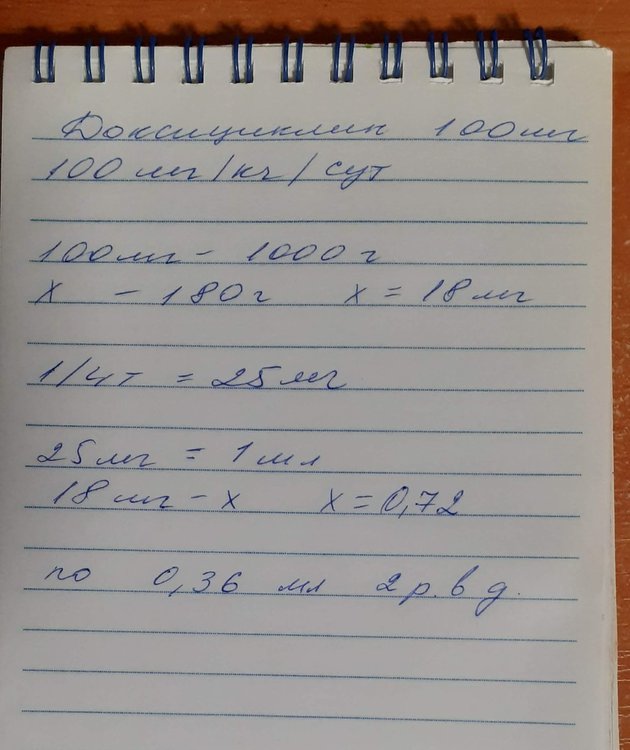 Доксициклин 100мг
100 мг/кг/сут
100мг - 1000 г
х - 180 г х = 18 мг
1/4 т = 25 мг
25 мг = 1 мл
18 мг - х х = 0,72
по 0,36 мл 2 р. в д.